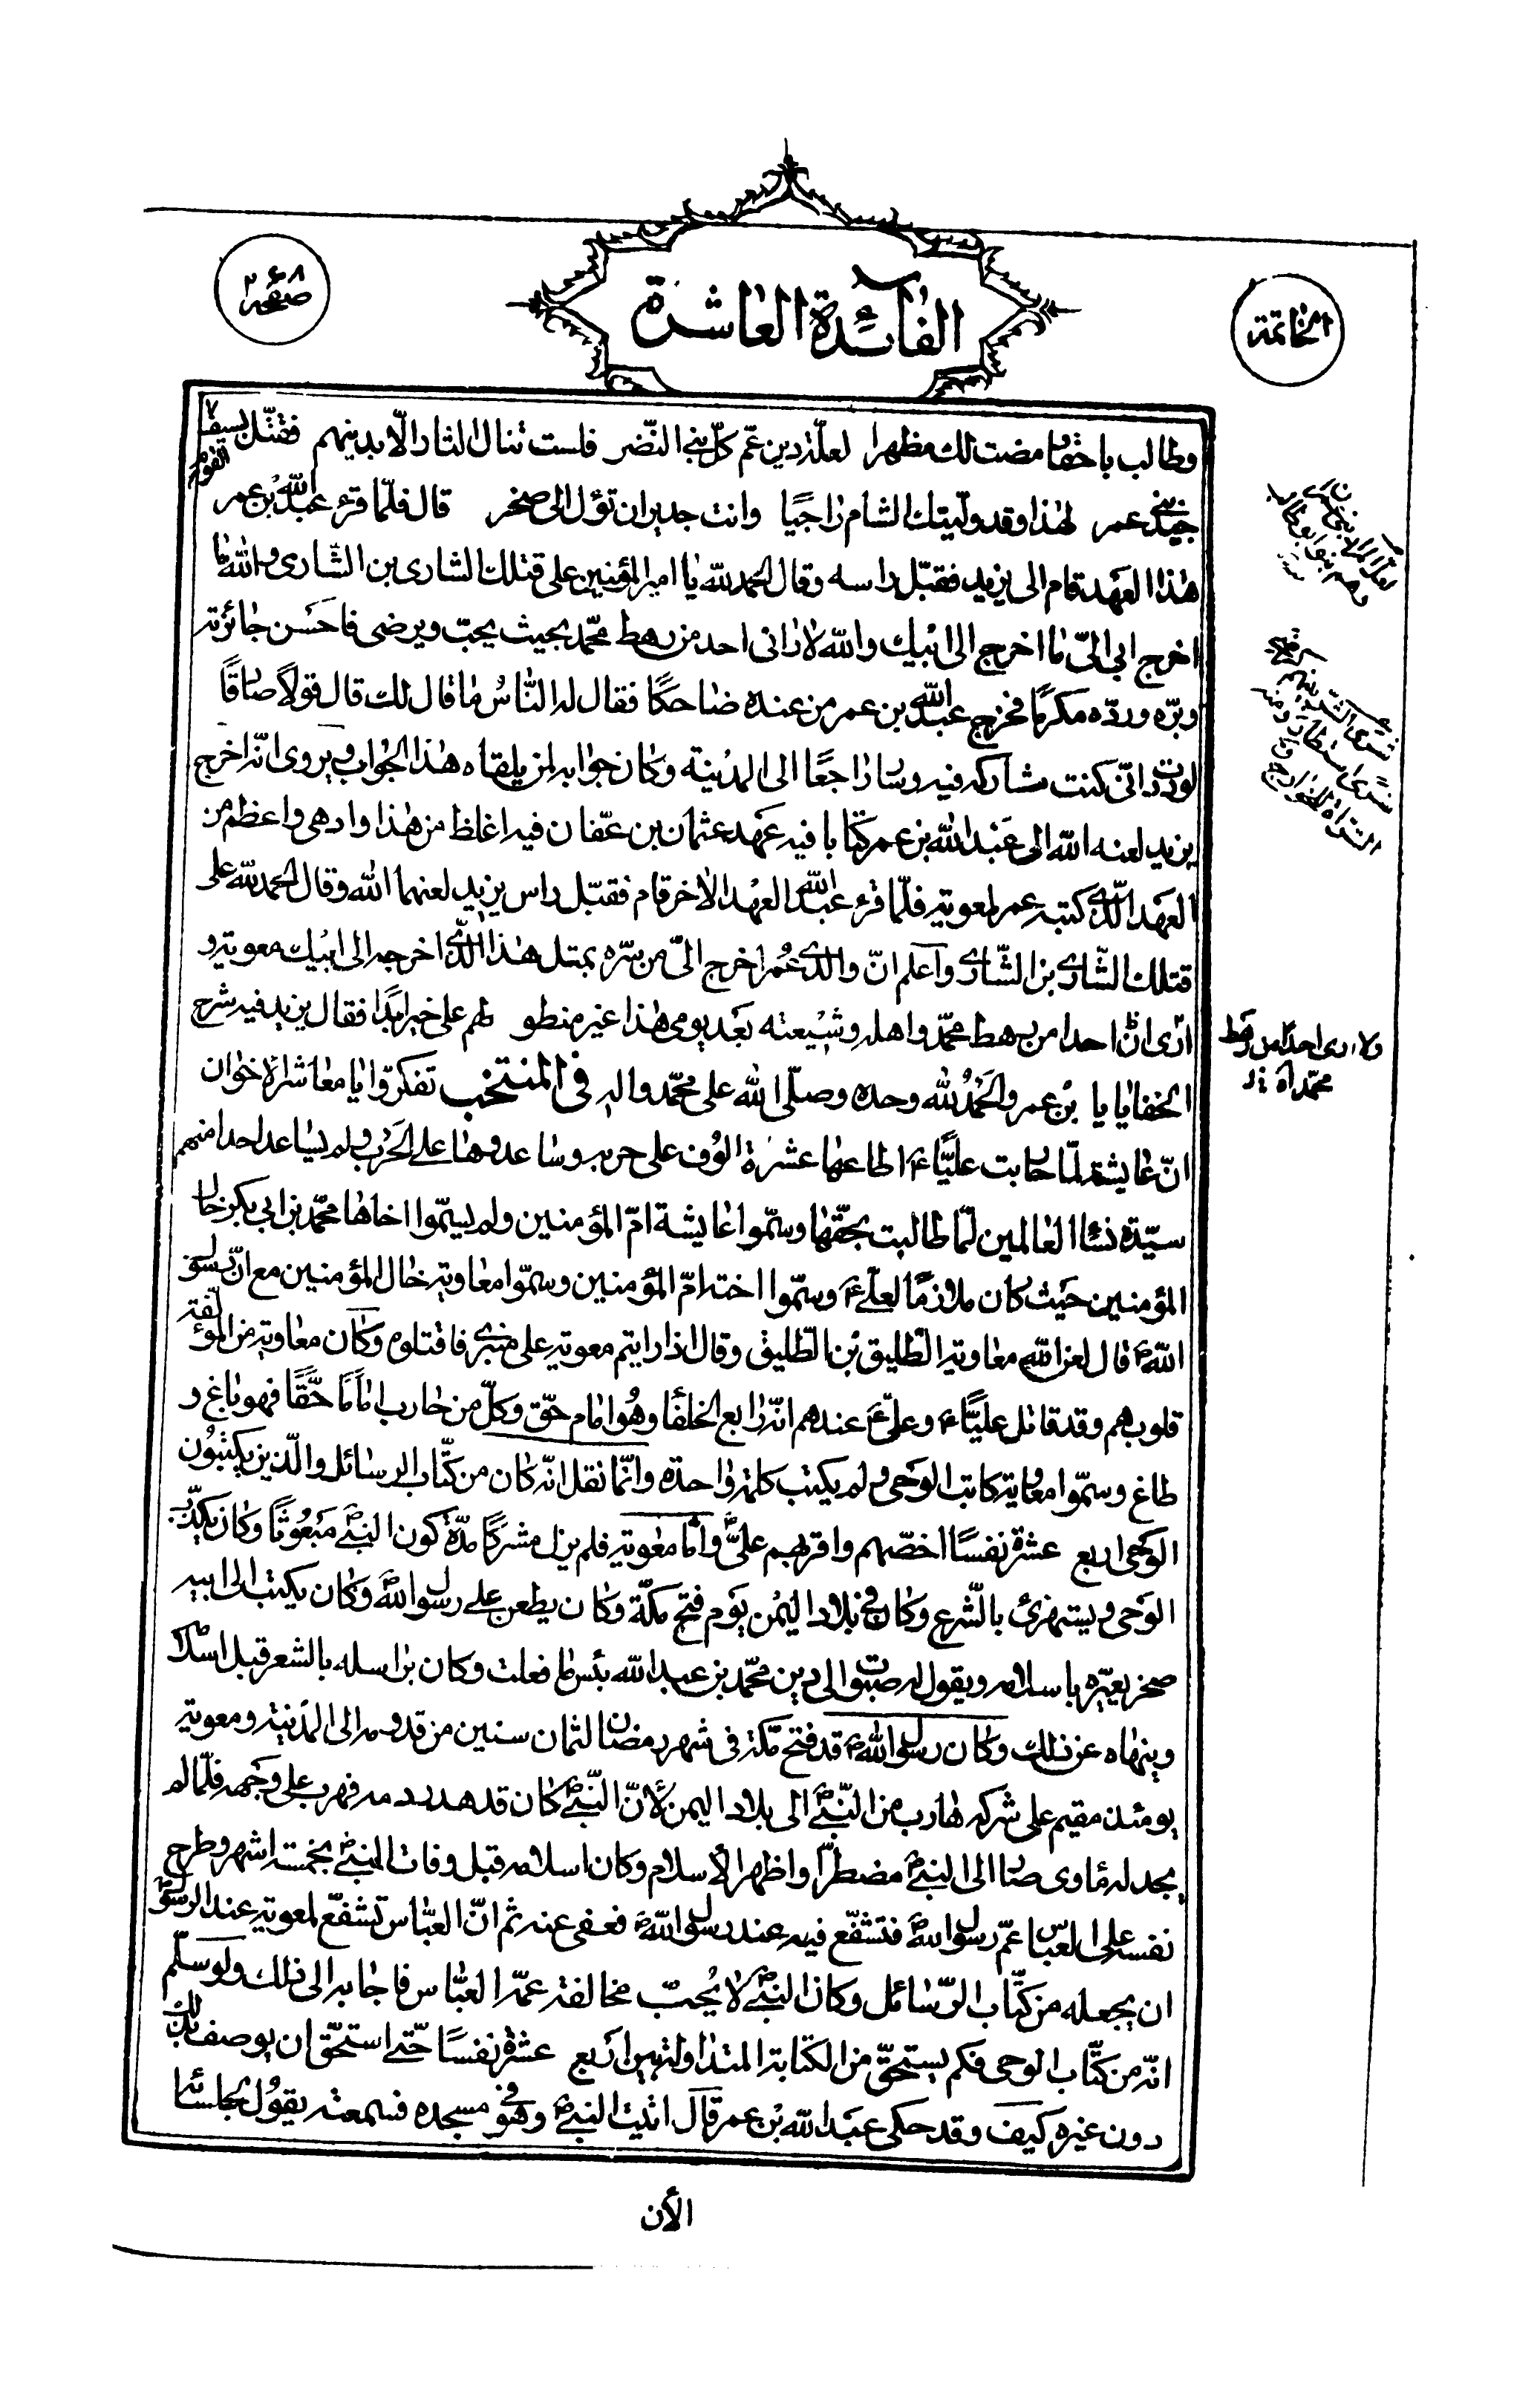 الخاتمة
الفائدة العاشرة
صفحه ٢٦٨
وطالب باحقاد مضت لك مظهرا لعلّة دين عمّ كلّ بنى النّضر فلست تنال الثار الّا بدينهم فتقتل بسيف القوم
جيد بنى عمر لهذا وقد وليتك الشام راجيًا وانت جدير ان تؤل الى صخر قال فلمّا قرء عبد الله بن عمر
هذا العهد قام الى يزيد فقبّل راسه وقال الحمد لله يا امير المؤمنين على قتلك الشارى بن الشّارى والله ما
اخرج ابى الىّ ما اخرج الى ابيك والله لا رانى احد من رهط محمّد بحيث يحبّ ويرضى فاحسن جائزته
وبرّه وردّه مكرمًا فخرج عبد الله بن عمر من عنده ضاحكًا فقال له النّاس ما قال لك قال قولًا صادقًا
لوددت انّى كنت مشاركه فيه وسار راجعًا الى المدينة وكان جوابه لمن يلقاه هذا الجواب ويروى انّه اخرج
يزيد لعنه الله الى عبد الله بن عمر كتابا فيه عهد عثمان بن عفّان فيه اغلظ من هذا وادهى واعظم من
العهد الّذى كتبه عمر لمعوية فلمّا قرء عبد الله العهد الاخر قام فقبّل راس يزيد لعنهما الله وقال الحمد لله على
قتلك الشّارى بن الشّارى واعلم انّ والدى عمر اخرج الىّ من سرّه بمثل هذا الّذى اخرجه الى ابيك معوية و
ارى انّ احدا من رهط محمّد واهله وشيعته بعد يومى هذا غير منطو لهم على خير ابدًا فقال يزيد فيه شرح
الخفايا يا بن عمر والحمد لله وحده وصلّى الله على محمّد واله فى المنتخب تفكروّا يا معاشر الاخوان
انّ عايشة لمّا حاربت عليًّا ع اطاعها عشرة الوف على حربه وساعدوها على الحرب ولم يساعد احد منهم
سيّدة نساء العالمين لمّا طالبت بحقّها وسمّوا عايشة امّ المؤمنين ولم يسمّوا اخاها محمّد بن ابى بكر خال
المؤمنين حيث كان ملازمًا لعلى ع وسمّوا اخته امّ المؤمنين وسمّوا معاوية خال المؤمنين مع انّ رسول
الله ص قال لعن الله معاوية الطّليق بن الطّليق وقال اذا رايتم معوية على منبرى فاقتلوه وكان معاوية من المؤلّفة
قلوبهم وقد قاتل عليًّا ع وعلىّ ع عندهم انّه رابع الخلفا وهو امام حقّ وكلّ من حارب امامًا حقًّا فهو باغ و
طاغ وسمّوا معاوية كاتب الوحى ولم يكتب كلمة واحدة وانّما نقل انّه كان من كتّاب الرسائل والّذين يكتبون
الوحى اربع عشرة نفسًا اخصّهم واقربهم علىّ ع وامّا معوية فلم يزل مشركًا مدّة كون النبىّ ص مبعوثًا وكان يكذّب
الوحى ويستهزئ بالشّرع وكان فى بلاد اليمن يوم فتح مكّة وكان يطعن على رسول الله ص وكان يكتب الى ابيه
صخر يعيّره باسلامه ويقول له صبوت الى دين محمّد بن عبد الله بئس ما فعلت وكان يراسله بالشعر قبل اسلامه
وينهاه عن ذلك وكان رسول الله ص قد فتح مكّة فى شهر رمضان لثمان سنين من قدومه الى المدينة ومعوية
يومئذ مقيم على شركه هارب من النّبىّ ص الى بلاد اليمن لأنّ النّبىّ ص كان قد هدر دمه فهرب على وجهه فلمّا لم
يجد له ماوى صار الى النبىّ ص مضطرّا واظهر الاسلام وكان اسلامه قبل وفات النبىّ ص بخمسة اشهر وطرح
نفسه على العبّاس عمّ رسول الله ص فتشفّع فيه عند رسول الله ص فعفى عنه ثم انّ العبّاس تشفّع لمعوية عند الرسول ص
ان يجعله من كتّاب الرّسائل وكان النبىّ ص لا يحبّ مخالفة عمّه العبّاس فاجابه الى ذلك ولو سلّم
انّه من كتّاب الوحى فكم يستحقّ من الكتابة المتداولة بين اربع عشرة نفسًا حتّى استحقّ ان يوصف بذلك
دون غيره كيف وقد حكى عبد الله بن عمر قال اتيت النبىّ ص وهو فى مسجده فسمعته يقول لجلسائه
ولا ارى احدًا من رهط
محمّد اه
الأن